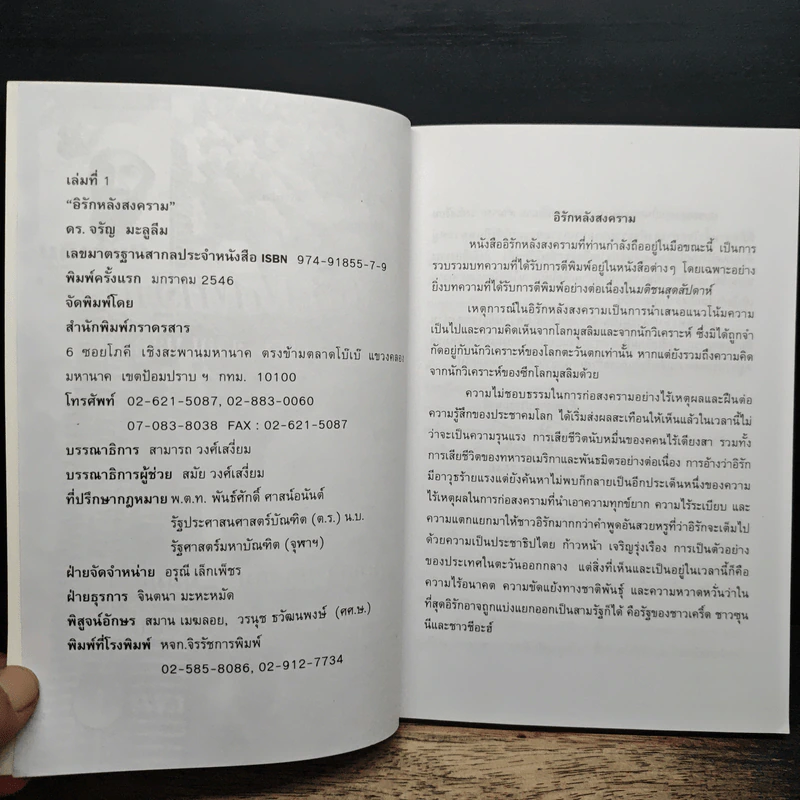 เล่มที่ 1
“อิรักหลังสงคราม”
ดร. จรัญ มะลูลีม
เลขมาตรฐานสากลประจำหนังสือ ISBN 974-91855-7-9
พิมพ์ครั้งแรก มกราคม 2546
จัดพิมพ์โดย
สำนักพิมพ์ภราดรสาร
6 ซอยโภคี เชิงสะพานมหานาค ตรงข้ามตลาดโบ๊เบ๊ แขวงคลอง
มหานาค เขตป้อมปราบ ฯ กทม. 10100
โทรศัพท์ 02-621-5087, 02-883-0060
07-083-8038 FAX : 02-621-5087
บรรณาธิการ สามารถ วงศ์เสงี่ยม
บรรณาธิการผู้ช่วย สมัย วงศ์เสงี่ยม
ที่ปรึกษากฎหมาย พ.ต.ท. พันธ์ศักดิ์ ศาสน์อนันต์
รัฐประศาสนศาสตร์บัณฑิต (ต.ร.) น.บ.
รัฐศาสตร์มหาบัณฑิต (จุฬาฯ)
ฝ่ายจัดจำหน่าย อรุณี เล็กเพ็ชร
ฝ่ายธุรการ จินตนา มะหะหมัด
พิสูจน์อักษร สมาน เมฆลอย, วรนุช ธวัฒนพงษ์ (ศศ.ษ.)
พิมพ์ที่โรงพิมพ์ หจก.จิรรัชการพิมพ์
02-585-8086, 02-912-7734
อิรักหลังสงคราม
หนังสืออิรักหลังสงครามที่ท่านกำลังถืออยู่ในมือขณะนี้ เป็นการ
รวบรวมบทความที่ได้รับการตีพิมพ์อยู่ในหนังสือต่างๆ โดยเฉพาะอย่าง
ยิ่งบทความที่ได้รับการตีพิมพ์อย่างต่อเนื่องในมติชนสุดสัปดาห์
เหตุการณ์ในอิรักหลังสงครามเป็นการนำเสนอแนวโน้มความ
เป็นไปและความคิดเห็นจากโลกมุสลิมและจากนักวิเคราะห์ ซึ่งมิได้ถูกจำ
กัดอยู่กับนักวิเคราะห์ของโลกตะวันตกเท่านั้น หากแต่ยังรวมถึงความคิด
จากนักวิเคราะห์ของซีกโลกมุสลิมด้วย
ความไม่ชอบธรรมในการก่อสงครามอย่างไร้เหตุผลและฝืนต่อ
ความรู้สึกของประชาคมโลก ได้เริ่มส่งผลสะเทือนให้เห็นแล้วในเวลานี้ไม่
ว่าจะเป็นความรุนแรง การเสียชีวิตนับหมื่นของคคนไร้เดียงสา รวมทั้ง
การเสียชีวิตของทหารอเมริกาและพันธมิตรอย่างต่อเนื่อง การอ้างว่าอิรัก
มีอาวุธร้ายแรงแต่ยังค้นหาไม่พบก็กลายเป็นอีกประเด็นหนึ่งของความ
ไร้เหตุผลในการก่อสงครามที่นำเอาความทุกข์ยาก ความไร้ระเบียบ และ
ความแตกแยกมาให้ชาวอิรักมากกว่าคำพูดอันสวยหรูที่ว่าอิรักจะเต็มไป
ด้วยความเป็นประชาธิปไตย ก้าวหน้า เจริญรุ่งเรือง การเป็นตัวอย่าง
ของประเทศในตะวันออกกลาง แต่สิ่งที่เห็นและเป็นอยู่ในเวลานี้ก็คือ
ความไร้อนาคต ความขัดแย้งทางชาติพันธุ์ และความหวาดหวั่นว่าใน
ที่สุดอิรักอาจถูกแบ่งแยกออกเป็นสามรัฐก็ได้ คือรัฐของชาวเคริ์ด ชาวซุน
นีและชาวชีอะฮ์